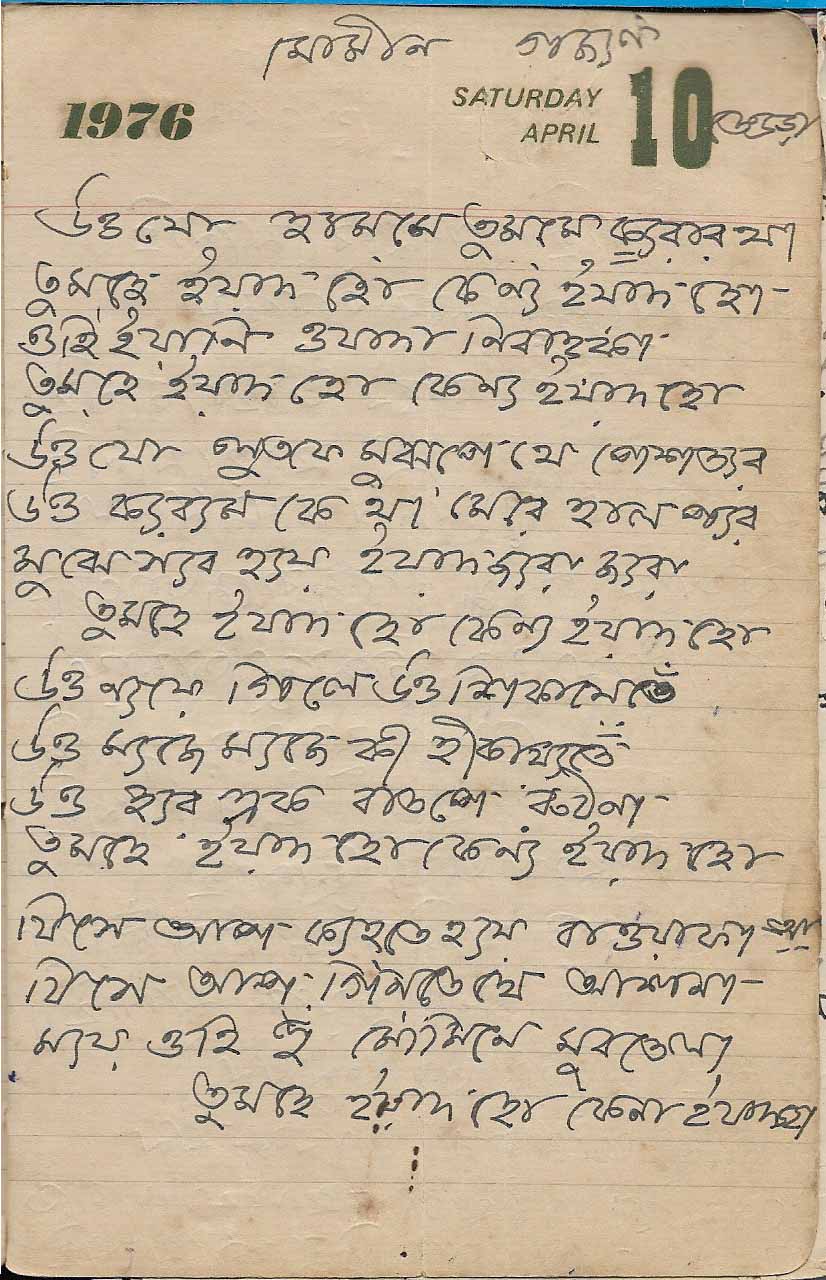 মোমীন গজল
1976 SATURDAY APRIL 10
উও যো হামমে তুমমে ক্যরার থা
তুমহে ইয়াদ হো কে ন্য ইয়াদ হো
ওহি ইয়ানি ওয়াদা নিবাহকা
তুমহে ইয়াদ হো কে ন্য ইয়াদ হো
উও যো লুতফ মুঝপে থে পেশত্যর
উও ক্যর‍্যম কে থা মেরে হাল প্যর
মুঝে স্যব হ্যয় ইয়াদ জ্যরা জ্যরা
তুমহে ইয়াদ হো কে ন্য ইয়াদ হো
উও ন্যয়ে গিলে উও শিকায়েতেঁ
উও ম্যজে ম্যজে কী হীকায়্যতেঁ
উও হ্যর এক বাতপে রুঠনা
তুমহে ইয়াদ হো কে ন্য ইয়াদ হো
যিসে আপ ক্যহতে হ্যয় বাওয়াফা
যিসে আপ গিনতে থে আশনা
ম্যয় ওহি হুঁ মোমিনে মুবতেলা
তুমহে ইয়াদ হো কে না ইয়াদ হো